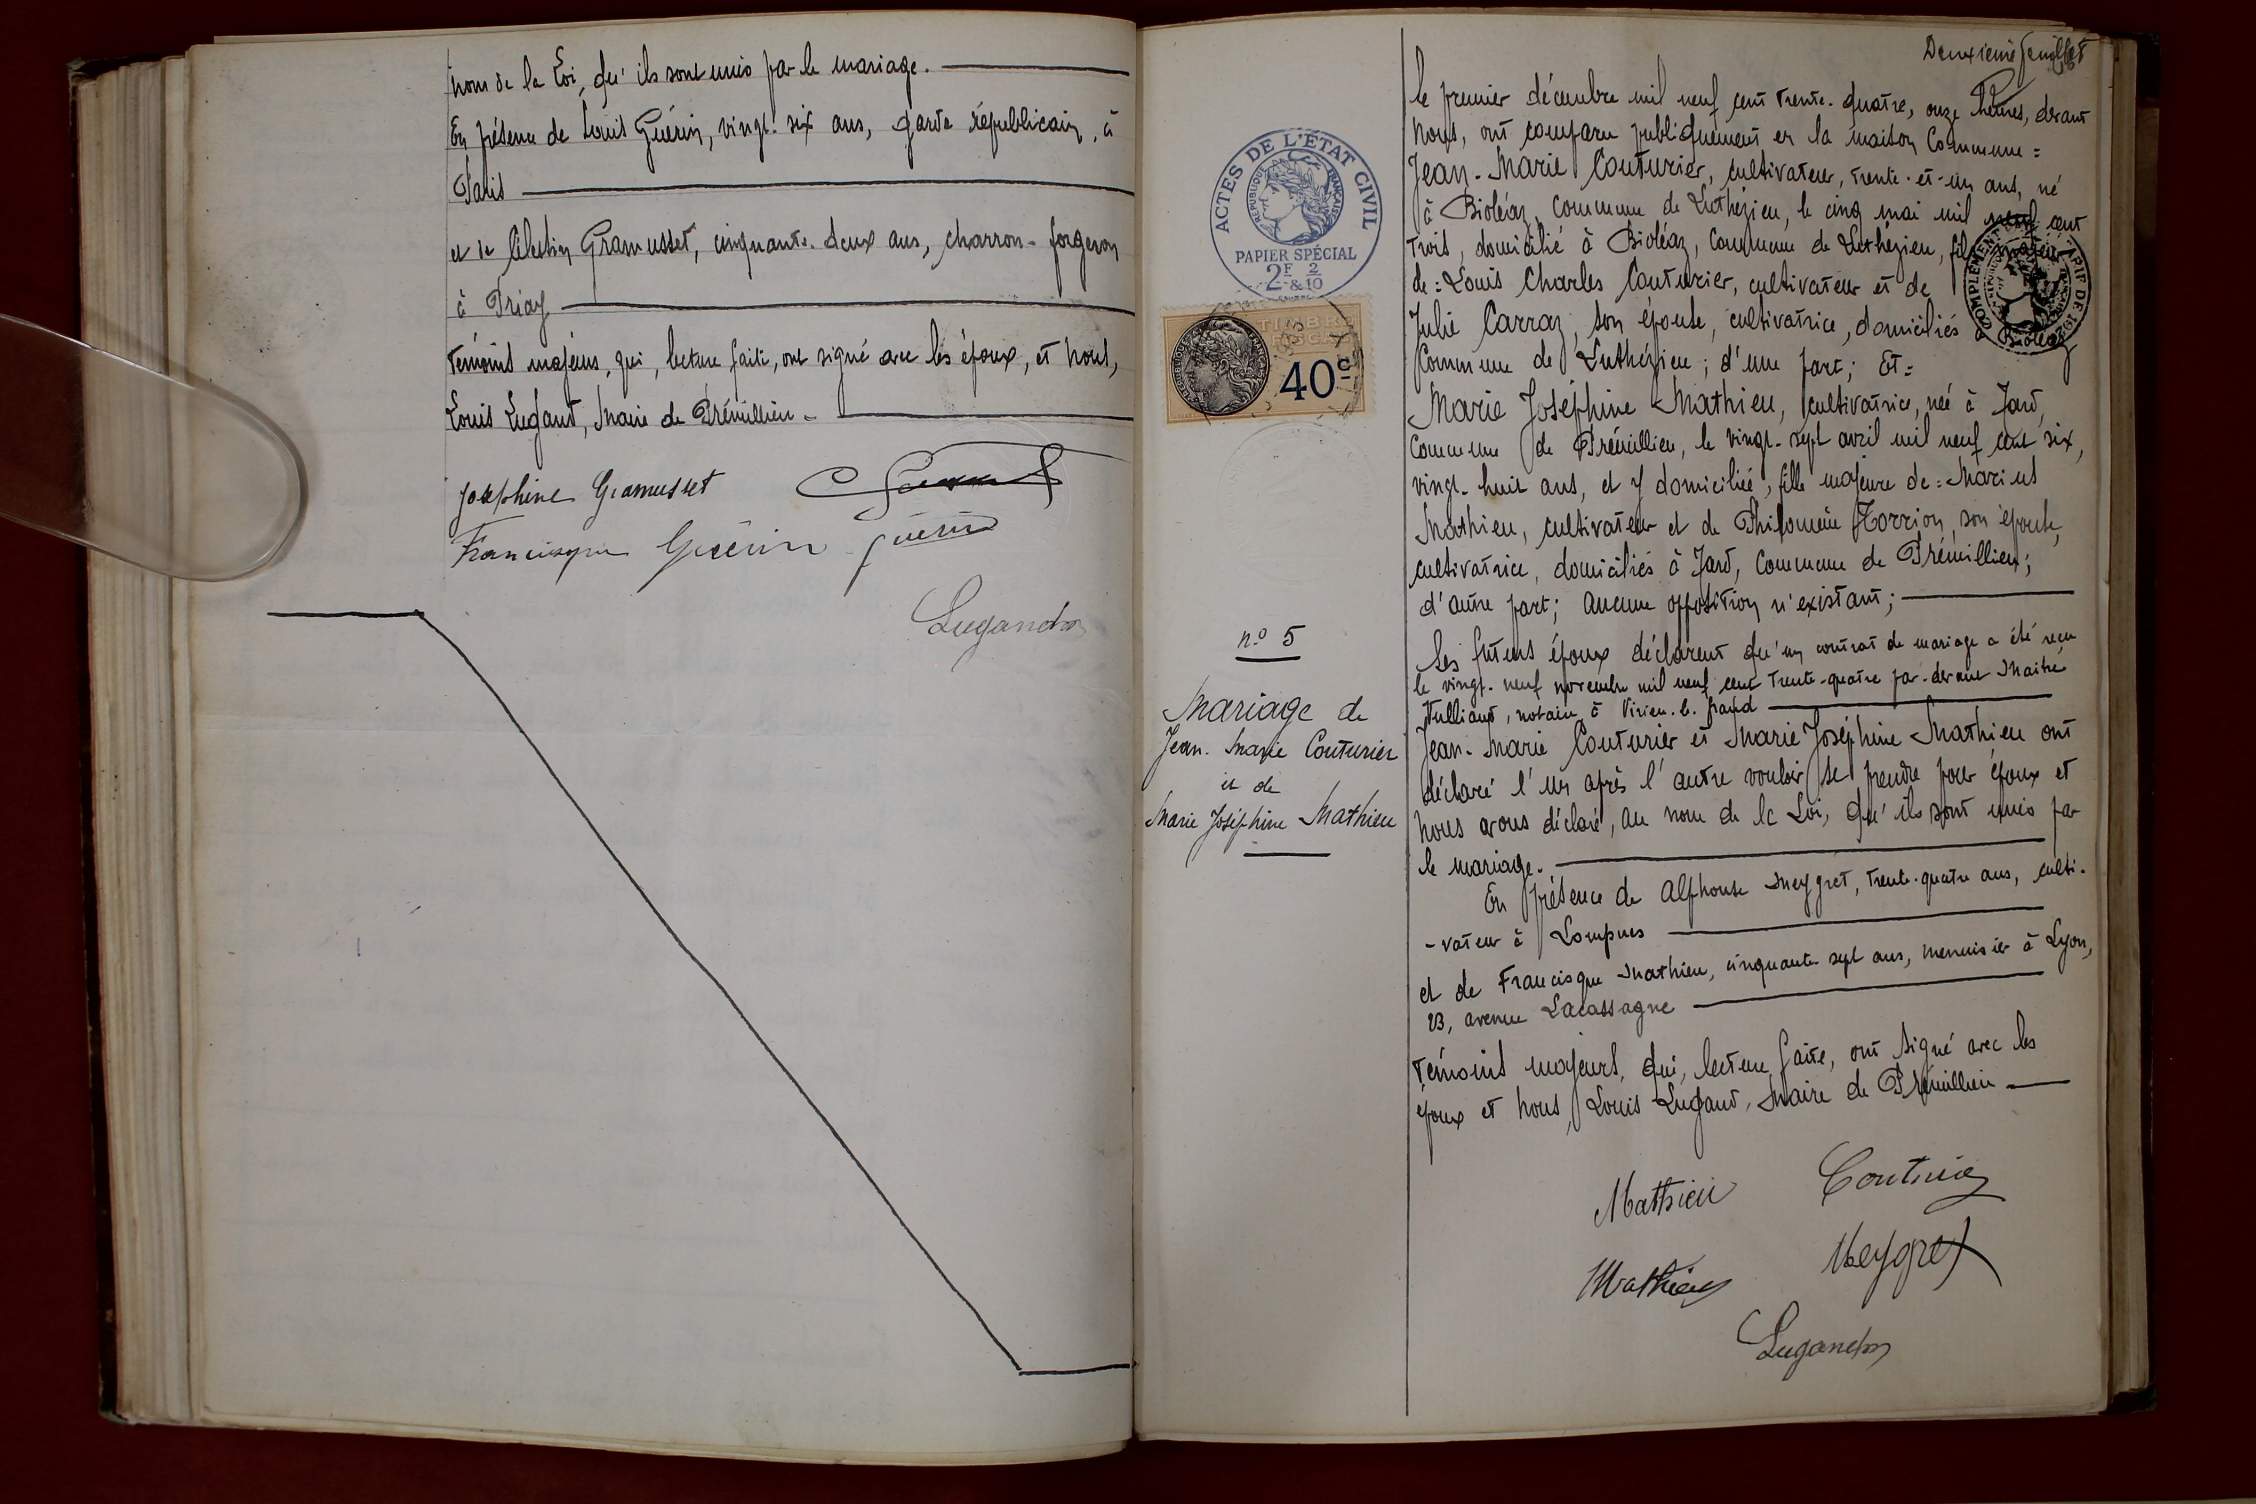 nom de la Loi, qu'ils sont unis par le mariage.
En présence de Louis Guérin, vingt-six ans, garde républicain, à
Paris
et de Célestin Gramusset, cinquante-deux ans, charron-forgeron
à Priay
témoins majeurs, qui, lecture faite, ont signé avec les époux, et Nous,
Louis Lugand, Maire de Prémillieu -
Josephine Gramusset
Francisque Guérin Guérin
Lugand
Deuxième feuillet
ACTES DE L'ÉTAT CIVIL
RÉPUBLIQUE FRANÇAISE
PAPIER SPÉCIAL
2F 2/10
&
TIMBRE
FISCAL
40c
n° 5
Mariage de
Jean-Marie Couturier
et de
Marie Joséphine Mathieu
Le premier décembre mil neuf cent trente-quatre, onze heures, devant
Nous, ont comparu publiquement en la maison Commune =
Jean-Marie Couturier, cultivateur, trente-et-un ans, né
à Bioléaz, commune de Luthézieu, le cinq mai mil neuf cent
trois, domicilié à Bioléaz, commune de Luthézieu, fils majeur
de = Louis Charles Couturier, cultivateur et de
Julie Carraz, son épouse, cultivatrice, domiciliés à Bioléaz
COMPLÉMENT TARIF DE
Commune de Luthézieu ; d'une part ; Et =
Marie Joséphine Mathieu, cultivatrice, née à Jard,
commune de Prémillieu, le vingt-sept avril mil neuf cent six,
vingt-huit ans, et y domiciliée, fille majeure de = Marius
Mathieu, cultivateur et de Philomène Torrion, son épouse,
cultivatrice, domiciliés à Jard, Commune de Prémillieu ;
d'autre part ; aucune opposition n'existant ;
Les futurs époux déclarent qu'un contrat de mariage a été reçu
le vingt-neuf novembre mil neuf cent trente-quatre par-devant Maitre
notaire à Virieu-le-Grand
Jean-Marie Couturier et Marie Joséphine Mathieu ont
déclaré l'un après l'autre vouloir se prendre pour époux et
Nous avons déclaré, au nom de la Loi, qu'ils sont unis par
le mariage.
En présence de Alphonse Meygret, trente-quatre ans, culti-
-vateur à Lompnes
et de Francisque Mathieu, cinquante sept ans, menuisier à Lyon,
23, avenue Lacassagne
témoins majeurs, qui, lecture faite, ont signé avec les
époux et Nous, Louis Lugand, Maire de Prémillieu
Mathieu Couturier
Mathieu Meygret
Lugand